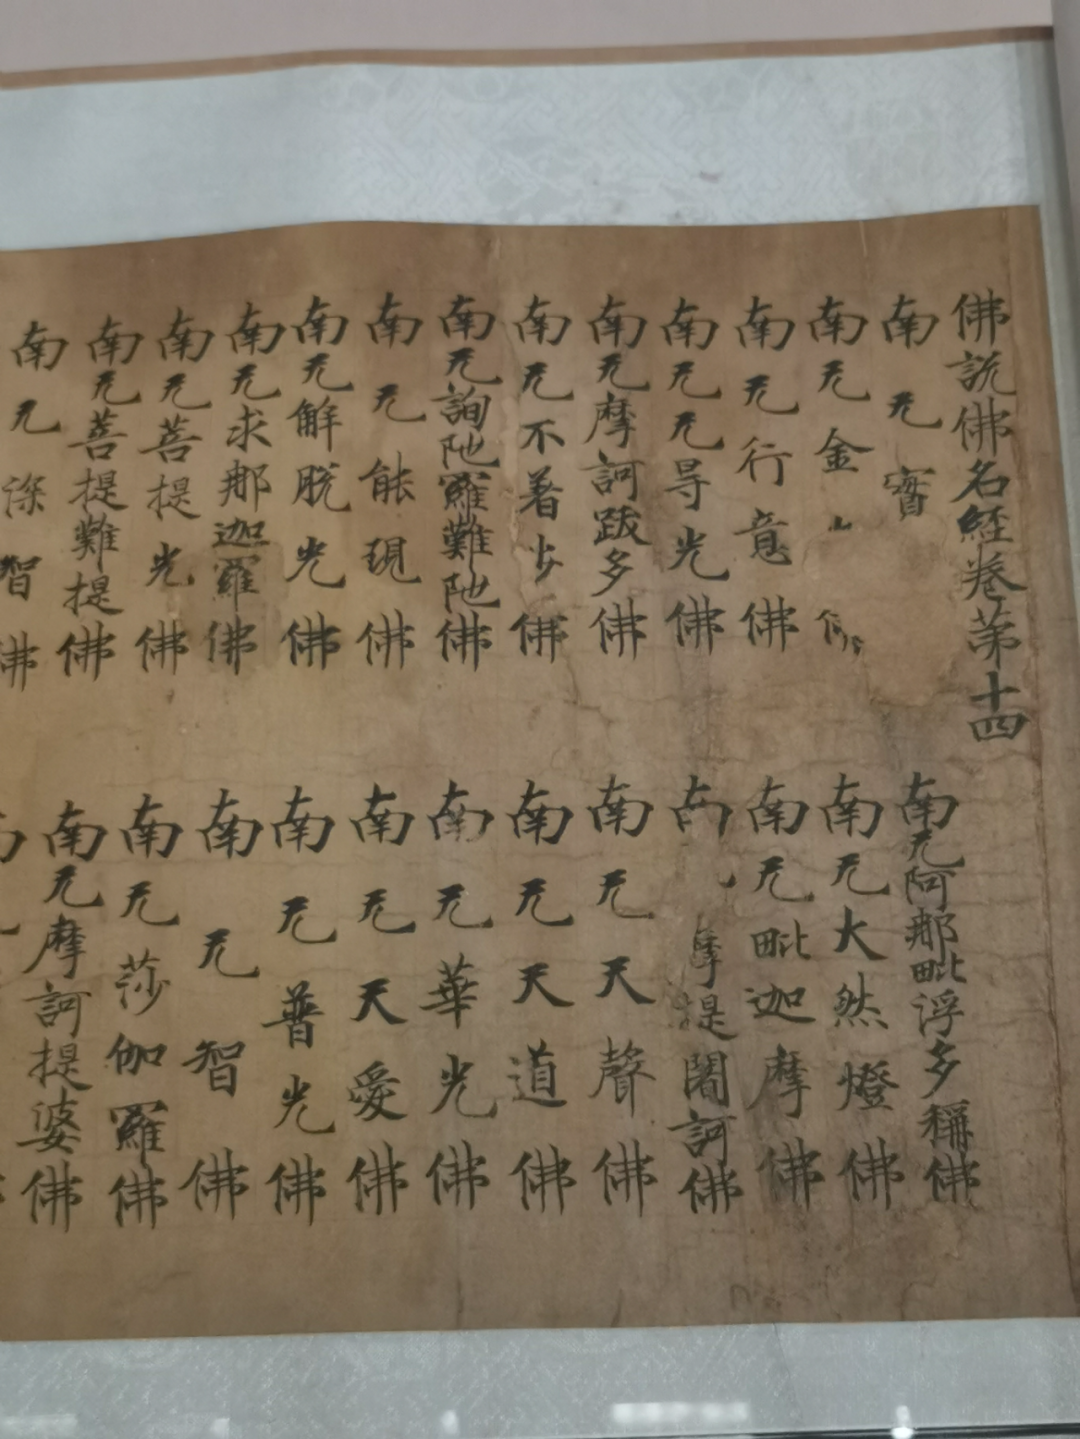 佛說佛名經卷苐十四
南无寶
南无阿那毗浮多稱佛
南无金山
南无大然燈佛
南无行意佛
南无毗迦摩佛
南无无㝵光佛
提闍訶佛
南无摩訶跋多佛
南无天聲佛
南无不著步佛
南无天道佛
南无詢陁羅難陁佛
南无華光佛
南无能現佛
南无天愛佛
南无解脫光佛
南无普光佛
南无求那迦羅佛
南无智佛
南无菩提光佛
南无莎伽羅佛
南无菩提難提佛
南无摩訶提婆佛
南无深智佛